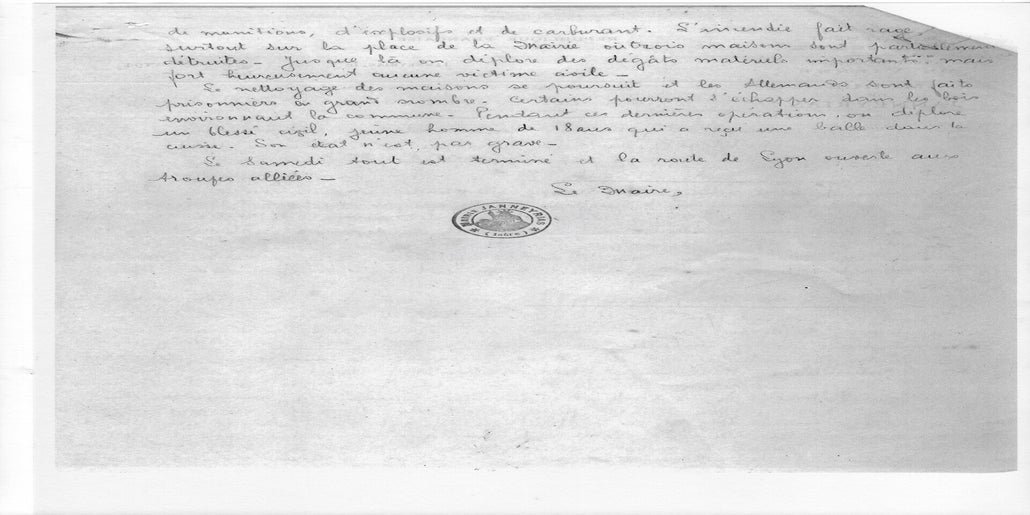 de munitions, d'explosifs et de carburant. L'incendie fait rage,
surtout sur la place de la Mairie où trois maisons sont partiellement
détruites - Jusque là on déplore des dégâts matériels importants - mais
fort heureusement aucune victime civile -
Le nettoyage des maisons se poursuit et les Allemands sont faits
prisonniers en grand nombre. Certains pourront s'échapper dans les bois
environnant la commune. Pendant ces dernières opérations, on déplore
un blessé civil, jeune homme de 18 ans qui a reçu une balle dans la
cuisse. Son état n'est pas grave -
Le Samedi tout est terminé et la route de Lyon ouverte aux
troupes alliées -
Le Maire,
MAIRIE JANNEYRIAS
(Isère)